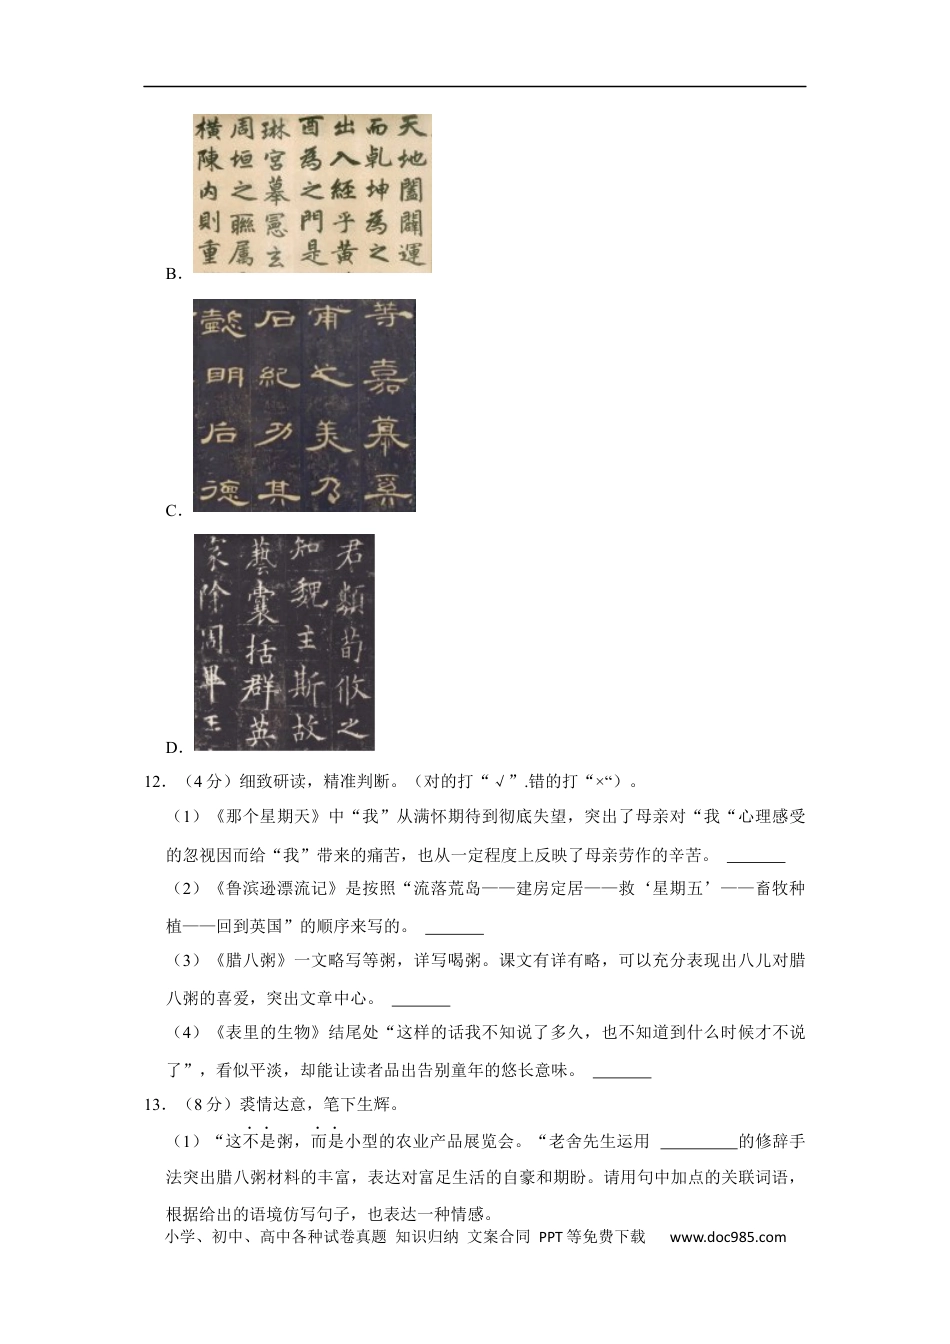 天地闔闢運
而乾坤為之
出入經乎黄
酉為之門是
琳宮墓寫玄
周垣之聯属
橫陳内則重
B．
等嘉慕奚
甫之美乃
石紀功其
懿明后德
C．
君類荀攸之
知魏主斯故
藝囊括群英
家除周畢王
D．
12．（4分）细致研读，精准判断。（对的打“√”.错的打“×“）。
（1）《那个星期天》中“我”从满怀期待到彻底失望，突出了母亲对“我“心理感受
的忽视因而给“我”带来的痛苦，也从一定程度上反映了母亲劳作的辛苦。 ______
（2）《鲁滨逊漂流记》是按照“流落荒岛——建房定居——救‘星期五’——畜牧种
植——回到英国”的顺序来写的。 ______
（3）《腊八粥》一文略写等粥，详写喝粥。课文有详有略，可以充分表现出八儿对腊
八粥的喜爱，突出文章中心。 ______
（4）《表里的生物》结尾处“这样的话我不知说了多久，也不知道到什么时候才不说
了”，看似平淡，却能让读者品出告别童年的悠长意味。 ______
13．（8分）裘情达意，笔下生辉。
（1）“这不是粥，而是小型的农业产品展览会。“老舍先生运用 ________的修辞手
法突出腊八粥材料的丰富，表达对富足生活的自豪和期盼。请用句中加点的关联词语，
根据给出的语境仿写句子，也表达一种情感。
小学、初中、高中各种试卷真题 知识归纳 文案合同 PPT等免费下载 www.doc985.com